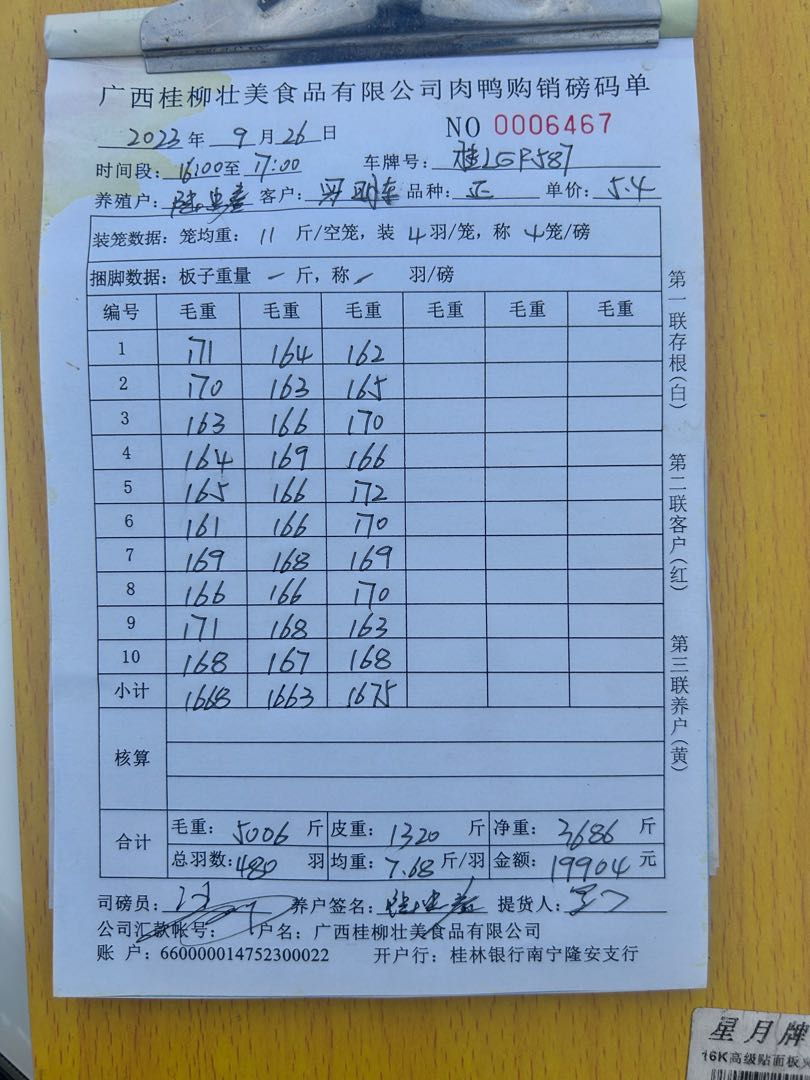 广西桂柳壮美食品有限公司肉鸭购销磅码单
2023年 9月26日 NO 0006467
时间段: 16:00至 17:00 车牌号:
养殖户: 客户: 品种: 正 单价: 5.4
装笼数据: 笼均重: 11 斤/空笼, 装 4 羽/笼, 称 4 笼/磅
捆脚数据: 板子重量 一 斤, 称 / 羽/磅
编号 毛重 毛重 毛重 毛重 毛重 毛重
1 171 164 162
2 170 163 165
3 163 166 170
4 164 169 166
5 165 166 172
6 161 166 170
7 169 168 169
8 166 166 170
9 171 168 163
10 168 167 168
小计 1668 1663 1675
核算
合计 毛重: 5006 斤 皮重: 1320 斤 净重: 3686 斤
总羽数: 480 羽 均重: 7.68 斤/羽 金额: 19904 元
司磅员: 养户签名: 提货人:
公司汇款帐号: 户名: 广西桂柳壮美食品有限公司
账 户: 660000014752300022 开户行: 桂林银行南宁隆安支行
第一联存根(白)
第二联客户(红)
第三联养户(黄)
星月牌
16K高级贴面板